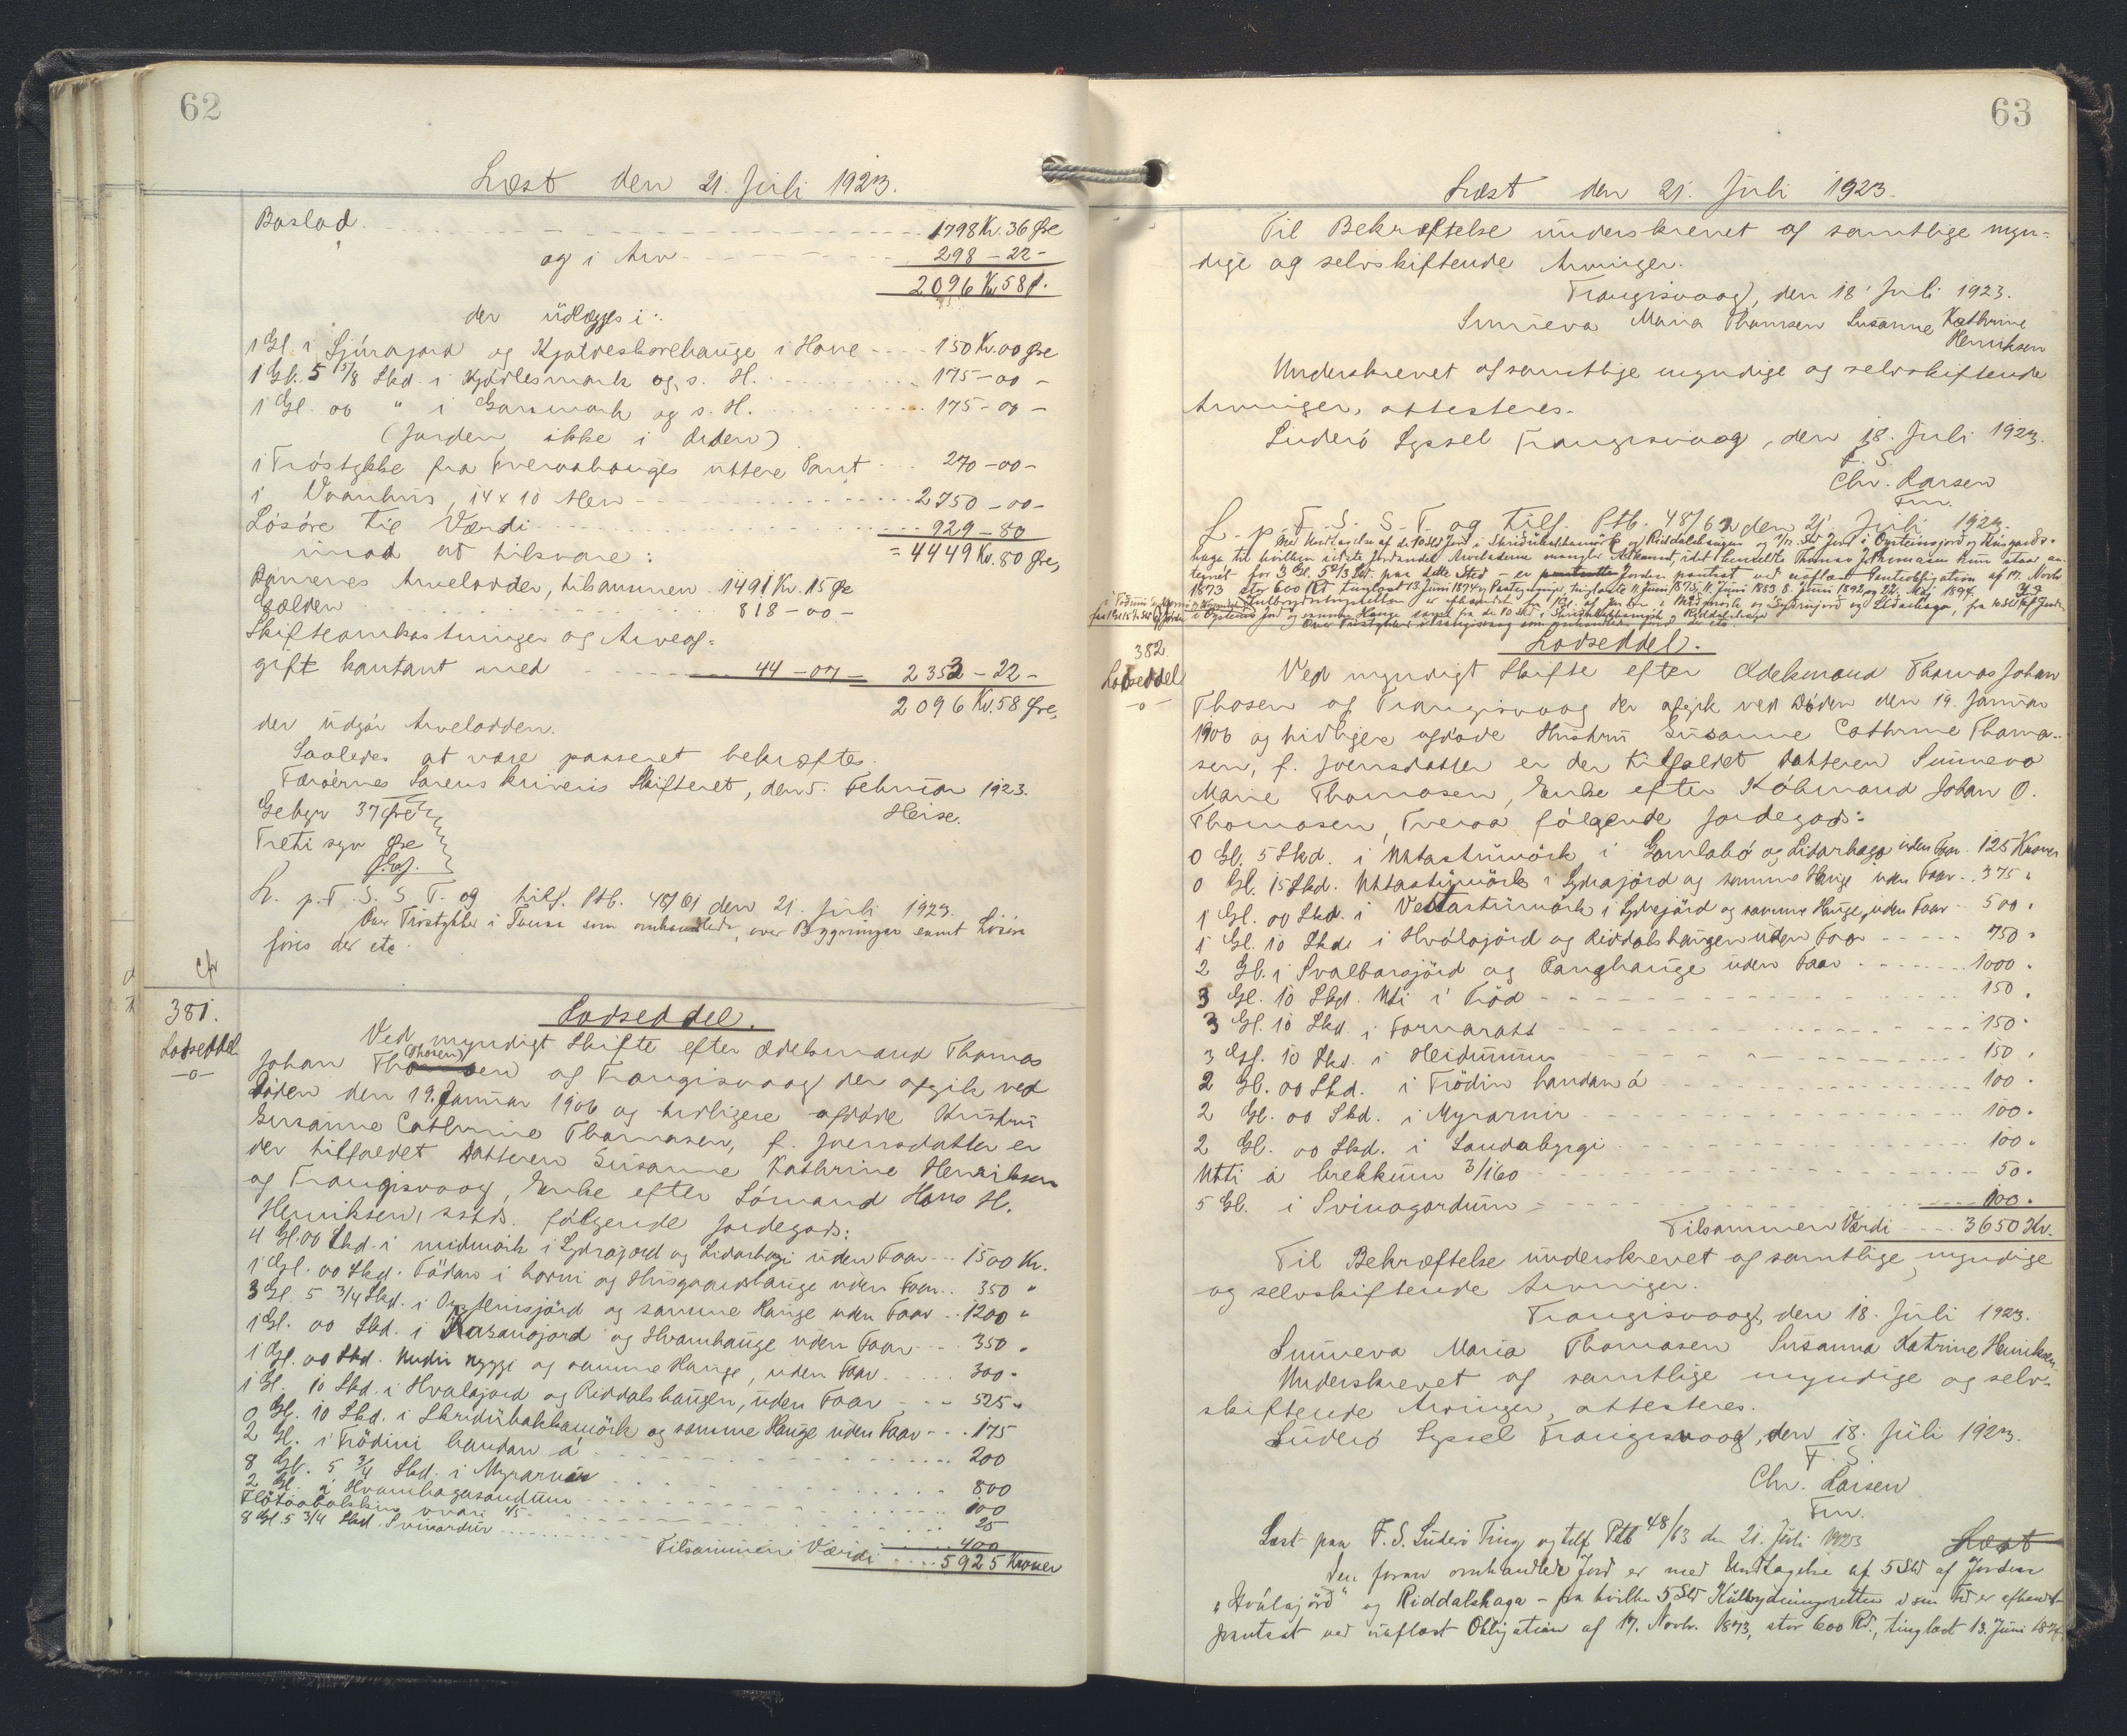 62
Læst den 21. Juli 1923.
Boslod 1798 Kr. 36 Øre
og i Arv 298 - 22 -
2096 Kr 58 Ø.
der udlægges i:
1 Gl. i Ljúrajord og Kjatveshorehauge i Hove 150 Kr. 00 Øre
1 Gl. 5 5/8 Skd. i Kjørlesmark og s. H. 175 - 00 -
1 Gl. 00 " i Garsmark og s. H. 175 - 00 -
(Jorden ikke i Orden)
i Trøstykke fra Tveraahauges uttere Part 270 - 00 -
i Vaanhus, 14 x 10 Alen 2750 - 00 -
Løsøre til Værdi 929 - 80
imod at tilsvare: = 4449 Kr. 80 Øre,
Børnenes Arvelodder, tilsammen 1491 Kr. 15 Øre
Gælden 818 - 00 -
Skifteomkostninger og Arveaf-
gift kontant med 44 - 07 = 2353 - 22 -
2096 Kr. 58 Øre,
der udgør Arvelodden.
Saaledes at være passeret bekræftes.
Færøernes Sorenskriveris Skifteret, den 5. Februar 1923.
Heise.
Gebyr 37 Øre
Treti syv Øre
L. p. F. S. S. T. og tilf. Ptb. 48/61 den 21. Juli 1923.
Over Trøstykket i Tverá som omhandlede, over Bygninger samt Løsøre
føres der etc.
Cfr
381.
Lodseddel
-o-
Lodseddel.
Ved myndigt Skifte efter Odelsmand Thomas
Johan (Thosen) af Trangisvaag der afgik ved
Døden den 19. Januar 1906 og tidligere afdøde Hustru
Susanne Cathrine Thomasen, f. Joensdatter er
der tilfaldet Datteren Susanne Kathrine Henriksen
af Trangisvaag, Enke efter Sømand Hans H.
Henriksen, sstds. følgende Jordegods:
4 Gl. 00 Skd. i midmørk i Lydrajord og Lidarhagi uden Faar 1500 Kr.
1 Gl. 00 Skd. Fødan i horni og Húsgaardshauge uden Faar 350 "
3 Gl. 5 3/4 Skd. i Oysteinsjørd og samme Hauge uden Faar 1200 "
1 Gl. 00 Skd. i Kasanajord og Hvamhauge uden Faar 350 "
1 Gl. 00 Skd. Undir ryggi og samme Hauge, uden Faar 300 "
1 Gl. 10 Skd. i Hvalajord og Riddalshaugen, uden Faar 525 "
0 Gl. 10 Skd. i Skriduhakkamørk og samme Hauge uden Faar 175
2 Gl. i Trødini handan á 200
8 Gl. 5 3/4 Skd. i Myrarnar 800
2 Gl. i Hvamhagasandum 100
ovari 1/5 25
8 Gl. 5 3/4 Skd. Svinardur 400
Tilsammen Værdi 5925 Kroner
63
Læst den 21. Juli 1923.
Til Bekræftelse underskrevet af samtlige myn-
dige og selvskiftende Arvinger.
Trangisvaag, den 18. Juli 1923.
Sunneva Maria Thomsen Susanne Kathrine
Henriksen
Underskrevet af samtlige myndige og selvskiftende
Arvinger, attesteres.
Suderø Syssel Trangisvaag, den 18. Juli 1923.
F. S.
Chr. Larsen
Fm.
L. p. F. S. S. T. og tilf. Ptb. 48/62 den 21. Juli 1923.
Med Undtagelse af de 10 Skd Jord i Skriduhakkamørk og Riddalshaugen og 1/2 Skd Jord i Oysteinsjord og Húsgards-
hage til hvilken sidste Jordandel Arveladerne mangler Adkomst, idet bemeldte Thomas J. Thomasen kun staar an-
tegnet for 3 Gl. 5 2/3 Skd. paa dette Sted - er Jorden pantsat ved uaflæst Panteobligation af 17. Novbr
1873 stor 600 Rd tinglæst 13. Juni 1874
382.
Lodseddel
-o-
Lodseddel.
Ved myndigt Skifte efter Odelsmand Thomas Johan
Thosen af Trangisvaag der afgik ved Døden den 19. Januar
1906 og tidligere afdøde Hustru Susanne Cathrine Thoma-
sen, f. Joensdatter er der tilfaldet Datteren Sunneva
Marie Thomasen, Enke efter Købmand Johan O.
Thomasen, Tveraa følgende Jordegods:
0 Gl. 5 Skd. i Uttastumørk i Gamlabø og Lidarhaga uden Faar 125 Kroner
0 Gl. 15 Skd. Uttastumørk i Lydrajørd og samme Hauge uden Faar 375 "
1 Gl. 00 Skd. i Vestastumørk i Lydrajørd og samme Hauge, uden Faar 500 "
1 Gl. 10 Skd. i Hválajørd og Riddalshaugen uden Faar 750 "
2 Gl. i Svalbarsjørd og Ranghauge uden Faar 1000 "
3 Gl. 10 Skd. Uti i Trød 150 "
3 Gl. 10 Skd. i Fornaratt 150 "
3 Gl. 10 Skd. i Heidunum 150 "
2 Gl. 00 Skd. i Trødin handan á 100 "
2 Gl. 00 Skd. i Myrarnir 100 "
2 Gl. 00 Skd. i Sandabyrgi 100 "
Utti á brekkum 3/160 50 "
5 Gl. i Svinagardum 100 "
Tilsammen Værdi 3650 Kr.
Til Bekræftelse underskrevet af samtlige myndige
og selvskiftende Arvinger.
Trangisvaag, den 18. Juli 1923.
Sunneva Maria Thomasen Susanna Katrine Henriksen,
Underskrevet af samtlige myndige og selv-
skiftende Arvinger, attesteres.
Suderø Syssel Trangisvaag, den 18. Juli 1923.
F. S
Chr. Larsen
Fm.
Læst paa F. S. Suderø Ting og tilf Ptb 48/63 den 21. Juli 1923 Læst
Den foran omhandlede Jord er med Undtagelse af 5 Skd af Jorden
"Hválajørd" og Riddalshaga - fra hvilke 5 Skd Kulbrydningsretten i sin Tid er afhændet -
pantsat ved uaflæst Obligation af 17. Novbr. 1873, stor 600 Rd., tinglæst 13. Juni 1874,